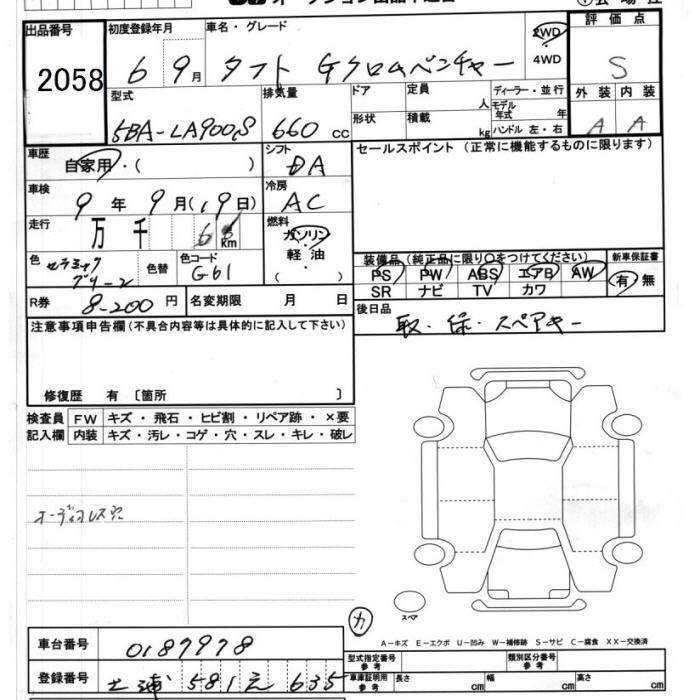 出品番号 2058
初度登録年月 6 9月
車名・グレード タフト Gクロムベンチャー
2WD
4WD
評価点 S
型式 5BA-LA900S
排気量 660 cc
ドア
形状
定員 人
積載 kg
ディーラー・並行
モデル年式 年
ハンドル 左・右
外装 内装
A A
車歴 自家用・( )
シフト DA
セールスポイント(正常に機能するものに限ります)
車検 9年 9月(19日)
冷房 AC
走行 万 千 km
燃料 ガソリン
軽油
( )
色 セラミックグリーン
色替
色コード G61
装備品(純正品に限り○をつけてください)
新車保証書
PS PW ABS エアB AW
有・無
SR ナビ TV カワ
R券 8-200 円
名変期限 月 日
後日品 取・保・スペアキー
注意事項申告欄(不具合内容等は具体的に記入して下さい)
修復歴 有 〔箇所 〕
検査員 FW キズ・飛石・ヒビ割・リペア跡・×要
記入欄 内装 キズ・汚レ・コゲ・穴・スレ・キレ・破レ
オーディオレス穴
スペア
カ
A-キズ E-エクボ U-凹み W-補修跡 S-サビ C-腐食 XX-交換済
車台番号 0187978
型式指定番号 参考
類別区分番号 参考
登録番号 土浦 581 え 635
車庫証明用 参考
長さ cm 幅 cm 高さ cm